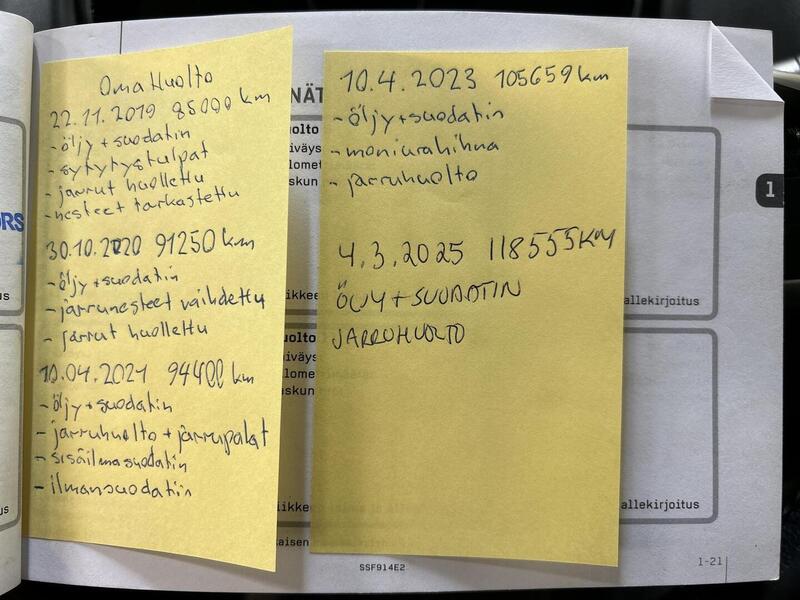 Oma Huolto
22.11.2019 85000 km
- öljy + suodatin
- sytytystulpat
- jarrut huollettu
- nesteet tarkastettu
30.10.2020 91250 km
- öljy + suodatin
- jarrunesteet vaihdettu
- jarrut huollettu
10.04.2021 94400 km
- öljy + suodatin
- jarruhuolto + jarrupalat
- sisäilmasuodatin
- ilmansuodatin
10.4.2023 105659 km
- öljy + suodatin
- moniurahihna
- jarruhuolto
4.3.2025 118555 KM
ÖLJY + SUODATIN
JARRUHUOLTO
NÄT
uolto
iväys
lomet
skun
ikkee
allekirjoitus
uolto
iväys
lome
skun
iikkee
allekirjoitus
kaisen
SSF914E2
1-21
1
ORS
us
us